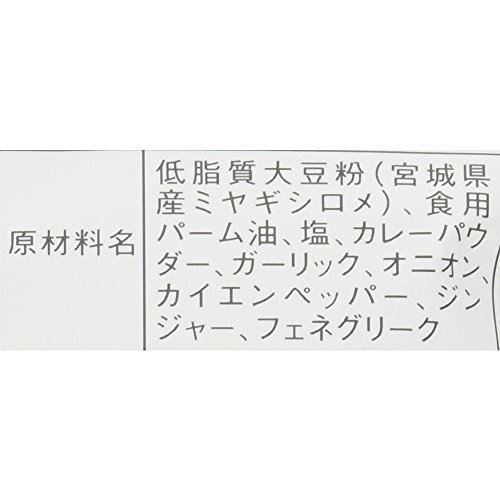 原材料名
低脂質大豆粉(宮城県
産ミヤギシロメ)、食用
パーム油、塩、カレーパウ
ダー、ガーリック、オニオン、
カイエンペッパー、ジン
ジャー、フェネグリーク